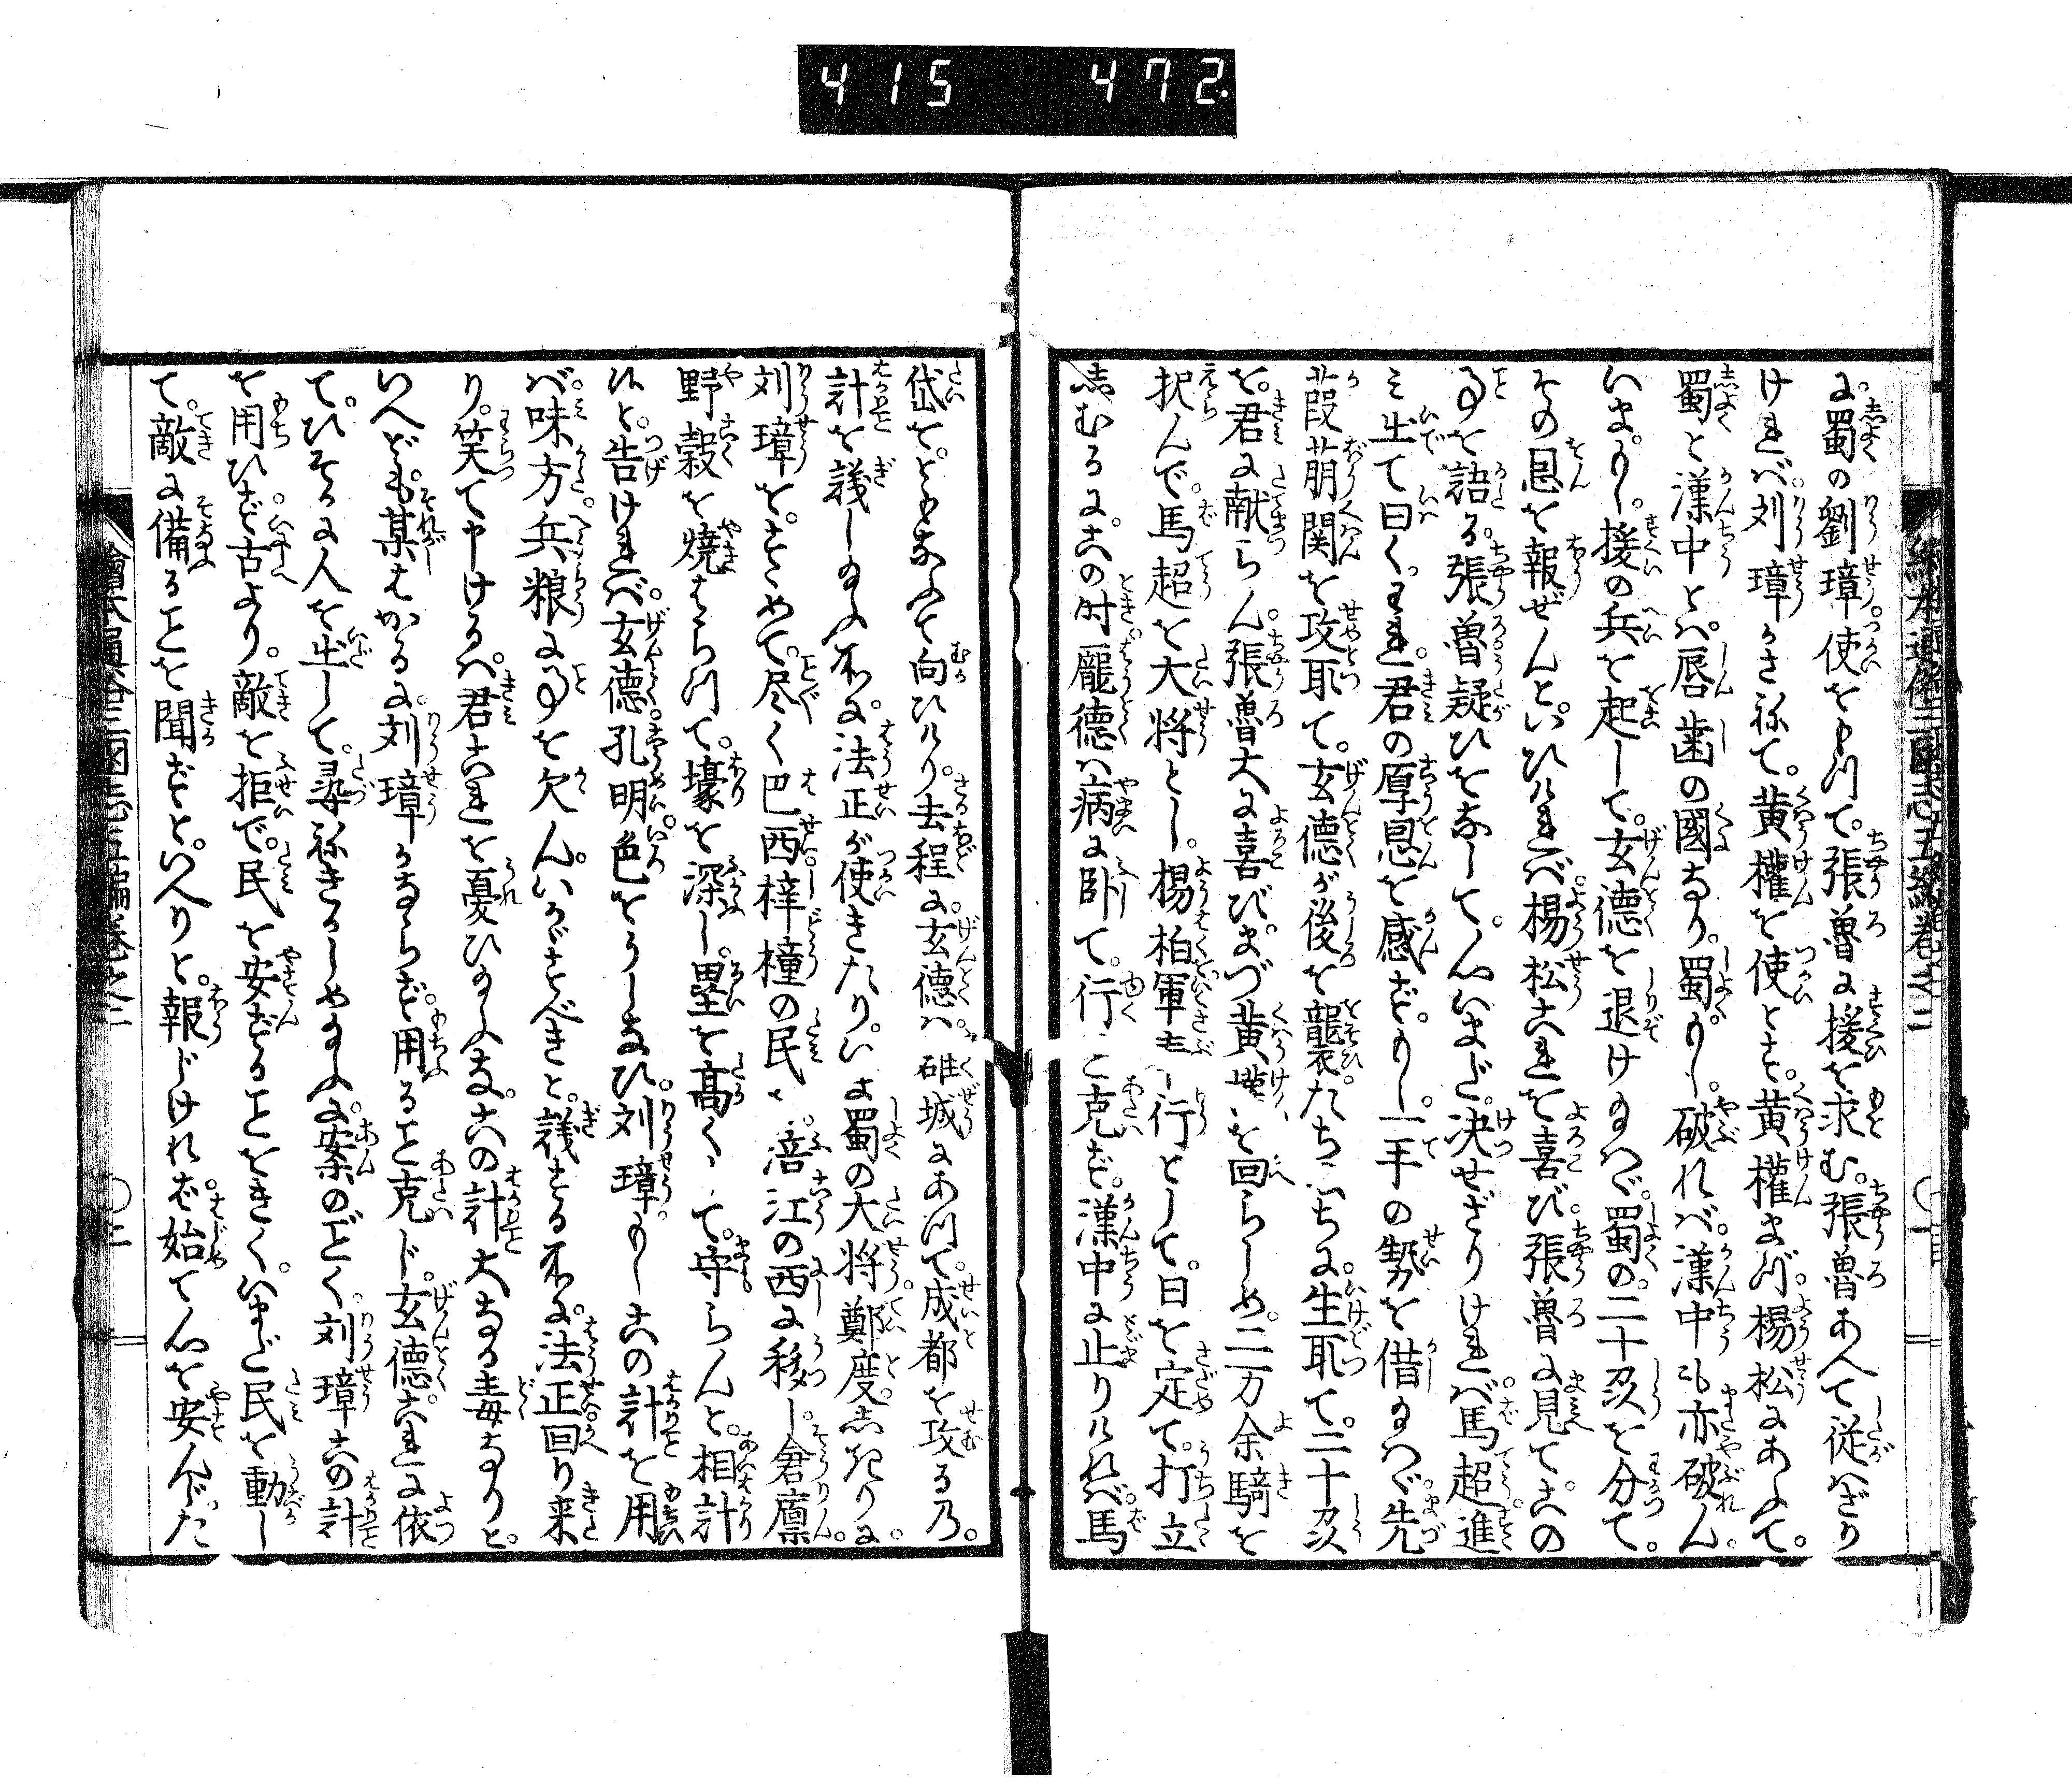 415 472
に。蜀の劉璋。使をもつて。張魯に援を求む。張魯あへて従はざり
ければ。刘璋かさねて。黄權を使とす。黄權まづ。楊松にあふて。
蜀と漢中とは。唇歯の國なり。蜀もし。破れば。漢中も亦破れん。
いまもし。援の兵を起して。玄徳を退け給はゞ。蜀の二十州を分て。
その恩を報ぜんと。いひければ。楊松これを喜び。張魯に見て。この
事を語る。張魯疑ひをなして。心いまだ。決せざりければ。馬超。進
み出て曰く。われ。君の厚恩を感ず。もし。一手の勢を借給はゞ。先
葭萠関を攻取て。玄徳が後を襲。たち〳〵ちに。生取て。二十州
を。君に献らん。張魯大に喜び。まづ黄權を回らしめ。二万余騎を
択んで。馬超を大将とし。楊柏軍 行として。日を定て。打立
しむるに。この時。龐徳は病に臥て。行 克ず。漢中に止りければ。馬
岱を。ともなふて向ひけり。去程に。玄徳は。雒城にあつて。成都を攻る乃。
計を議し給ふ所に。法正が使きたり。いま蜀の大将。鄭度。しきりに。
刘璋を。すゝめて。尽く巴西。梓橦の民を。涪江の西に移し。倉廩。
野穀を焼はらつて。壕を深し。塁を高く て。守らんと。相計
ると。告ければ。玄徳。孔明。色をうしなひ。刘璋。もしこの計を用
ば。味方。兵粮に事を欠ん。いかゞすべきと。議する所に。法正回り来
り。笑て申けるは。君これを憂ひ給ふな。この計大なる毒なりと。
いへども。某はかるに。刘璋かならず。用ること克じ。玄徳。これに依
て。ひそかに人を出して。尋ねきかしめ給ふに。案のごとく。刘璋この計
を用ひず。古より。敵を拒で。民を安ずることをきく。いまだ民を動し
て。敵に備ることを聞ずと。いへりと。報じければ。始て心を安んじた